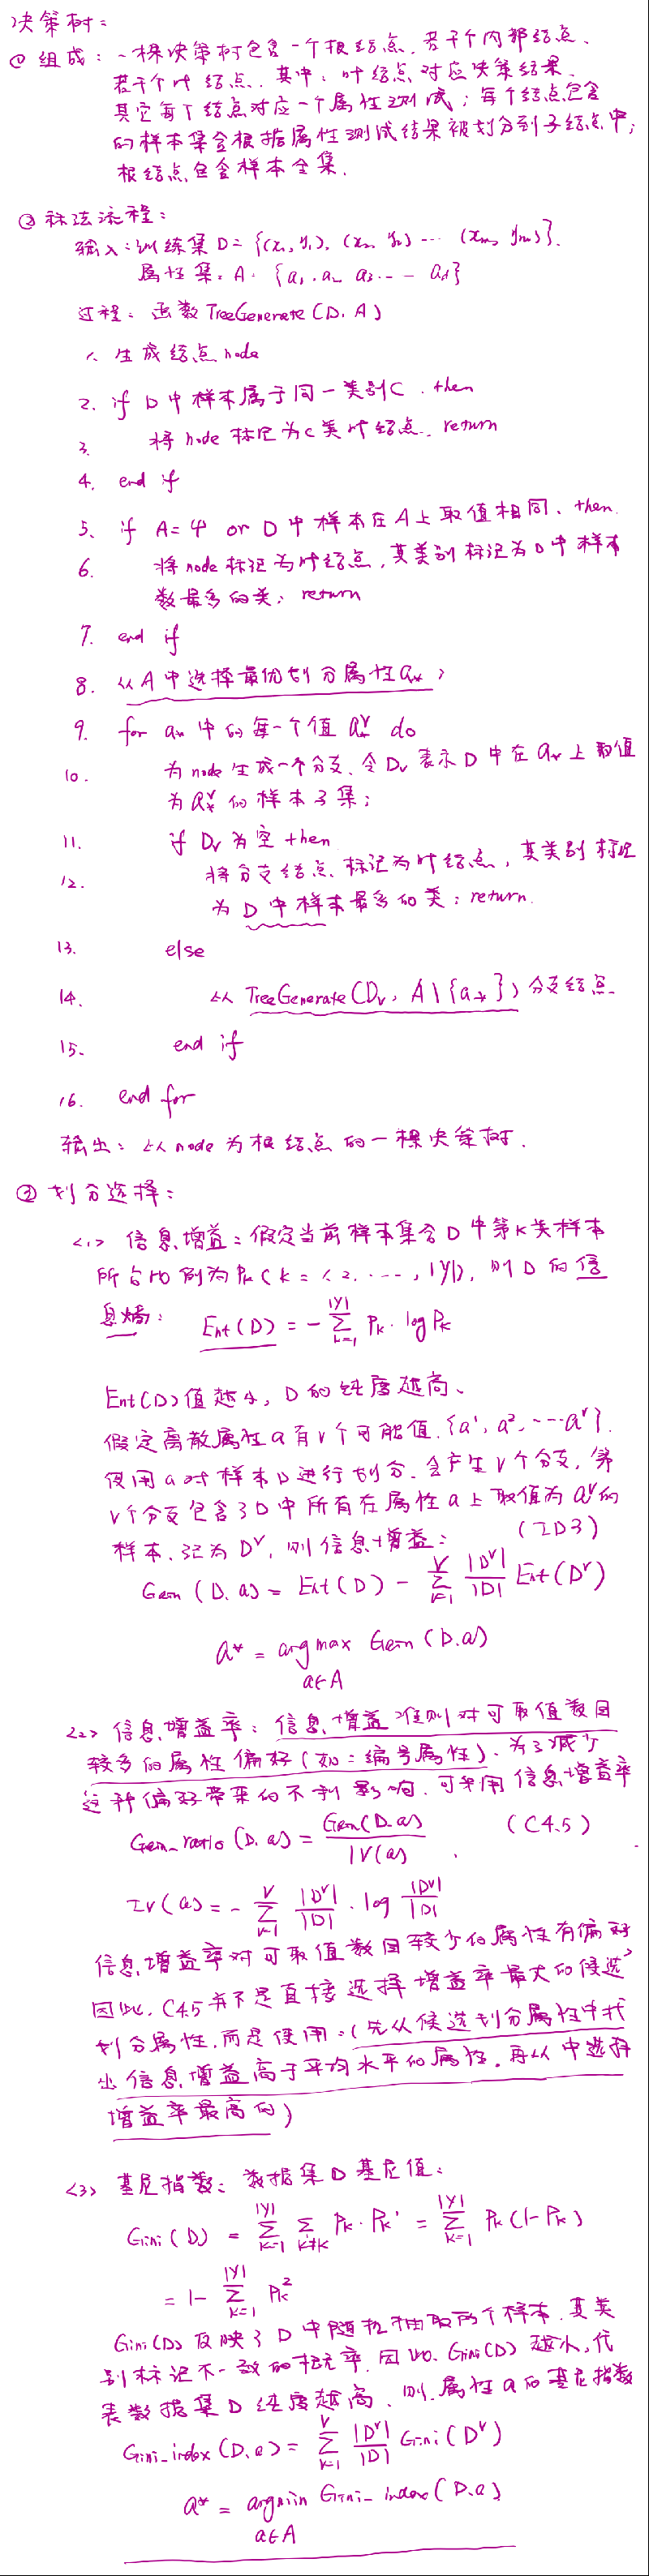 决策树：
① 组成：一棵决策树包含一个根结点、若干个内部结点、
若干个叶结点．其中：叶结点对应决策结果、
其它每个结点对应一个属性测试；每个结点包含
的样本集合根据属性测试结果被划分到子结点中；
根结点包含样本全集．
② 算法流程：
输入：训练集 D = {(x₁, y₁), (x₂, y₂) ... (xₘ, yₘ)}.
属性集：A = {a₁, a₂, a₃ ... a_d}
过程：函数 TreeGenerate(D, A)
1. 生成结点 node
2. if D 中样本属于同一类别 C . then
3. 将 node 标记为 C 类叶结点. return
4. end if
5. if A = φ or D 中样本在 A 上取值相同、then.
6. 将 node 标记为叶结点，其类别标记为 D 中样本
数最多的类；return
7. end if
8. 从 A 中选择最优划分属性 a*；
9. for a* 中的每一个值 a*ᵛ do
10. 为 node 生成一个分支、令 Dᵥ 表示 D 中在 a* 上取值
为 a*ᵛ 的样本子集；
11. if Dᵥ 为空 then
12. 将分支结点标记为叶结点，其类别标记
为 D 中样本最多的类；return.
13. else
14. 以 TreeGenerate(Dᵥ, A \ {a*}) 分支结点
15. end if
16. end for
输出：以 node 为根结点的一棵决策树．
③ 划分选择：
<1> 信息增益：假定当前样本集合 D 中第 k 类样本
所占比例为 Pk (k = 1 2. ..., |y|), 则 D 的信
息熵：Ent(D) = - Σ_{k=1}^{|y|} Pk · log Pk
Ent(D) 值越小，D 的纯度越高、
假定离散属性 a 有 V 个可能值. {a¹, a², ... aᵛ}.
使用 a 对样本 D 进行划分．会产生 V 个分支，第
v 个分支包含了 D 中所有在属性 a 上取值为 aᵛ 的
样本、记为 Dᵛ，则信息增益：（ID3）
Gain (D, a) = Ent(D) - Σ_{v=1}^{V} |Dᵛ|/|D| Ent(Dᵛ)
a* = argmax Gain (D, a)
a∈A
<2> 信息增益率：信息增益准则对可取值数目
较多的属性偏好（如：编号属性）、为了减少
这种偏好带来的不利影响．可采用信息增益率
Gain_ratio (D, a) = Gain(D, a) / IV(a) . （C4.5）
IV(a) = - Σ_{v=1}^{V} |Dᵛ|/|D| · log |Dᵛ|/|D|
信息增益率对可取值数目较少的属性有偏好
因此．C4.5 并不是直接选择增益率最大的候选
划分属性．而是使用：（先从候选划分属性中找
出信息增益高于平均水平的属性．再从中选择
增益率最高的）
<3> 基尼指数：数据集 D 基尼值：
Gini(D) = Σ_{k=1}^{|y|} Σ_{k'≠k} Pk · Pk' = Σ_{k=1}^{|y|} Pk (1-Pk)
= 1 - Σ_{k=1}^{|y|} Pk²
Gini(D) 反映了 D 中随机抽取两个样本．其类
别标记不一致的概率．因此. Gini(D) 越小，代
表数据集 D 纯度越高、则. 属性 a 的基尼指数
Gini_index(D, a) = Σ_{v=1}^{V} |Dᵛ|/|D| Gini(Dᵛ)
a* = argmin Gini_index(D, a)
a∈A